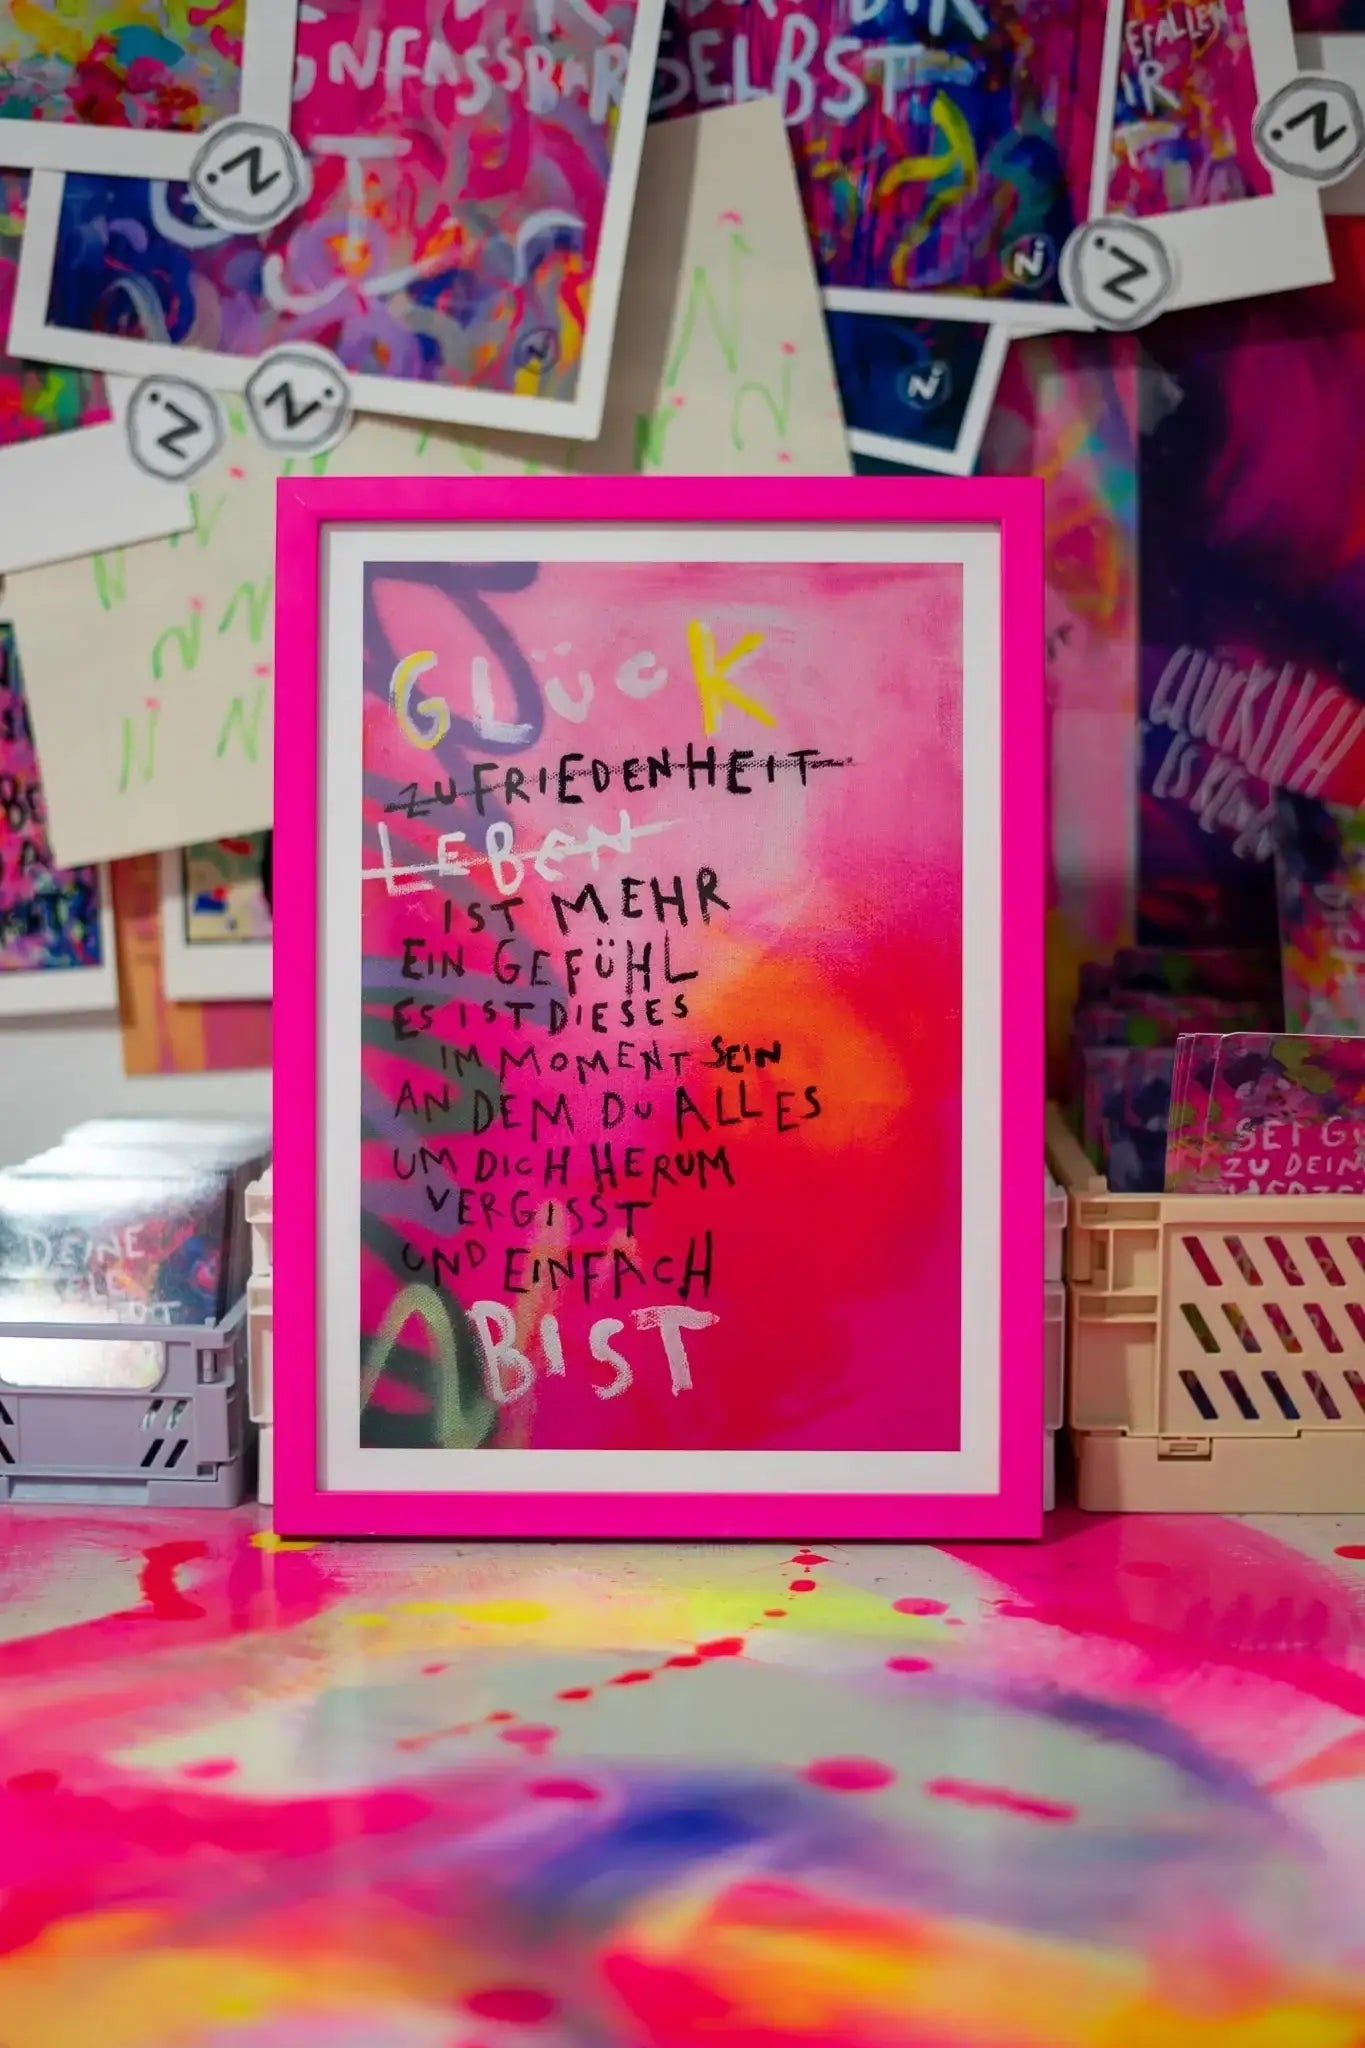 UNFASSBAR
SELBST
GEFALLEN
DIR
GLÜCK
ZUFRIEDENHEIT
LEBEN
IST MEHR
EIN GEFÜHL
ES IST DIESES
IM MOMENT SEIN
AN DEM DU ALLES
UM DICH HERUM
VERGISST
UND EINFACH
BIST
GLÜCKLICH
DEINE
SEI GU
ZU DEIN